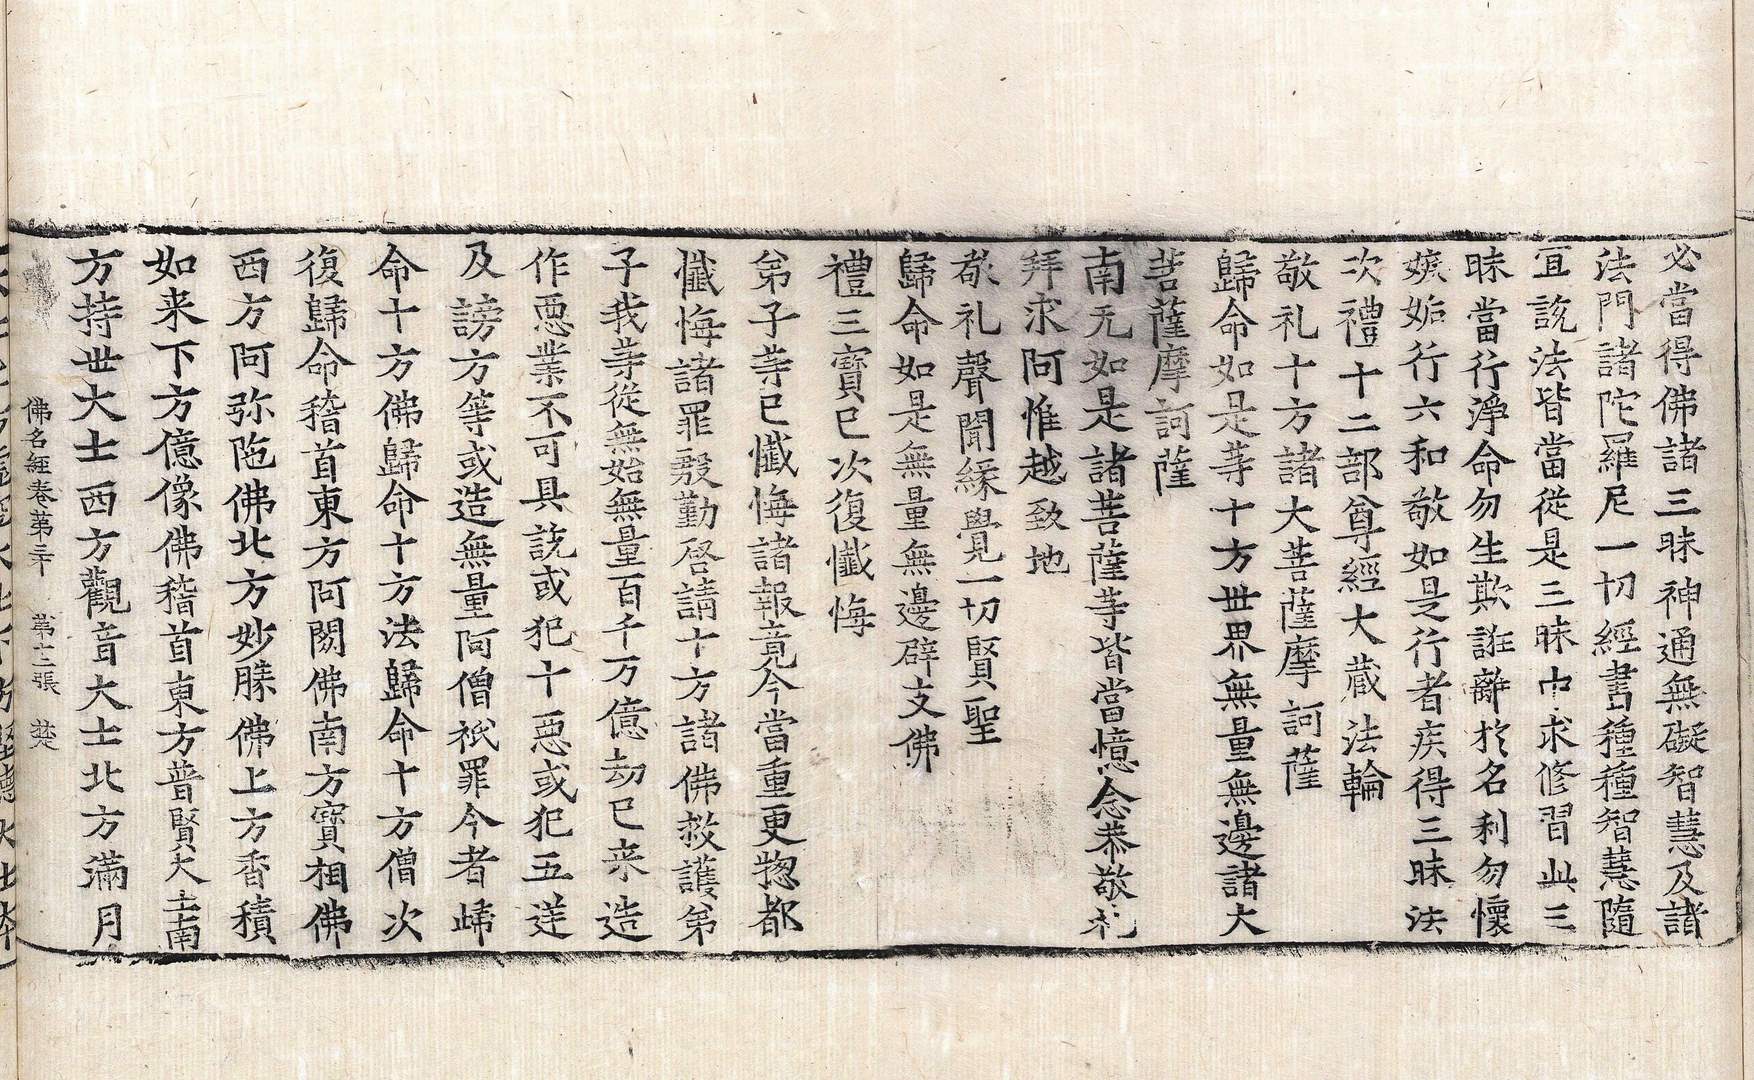 必當得佛諸三昧神通無礙智慧及諸
法門諸陀羅尼一切經書種種智慧隨
宜說法皆當從是三昧中求修習此三
昧當行淨命勿生欺誑離於名利勿懷
嫉妬行六和敬如是行者疾得三昧法
次禮十二部尊經大藏法輪
敬礼十方諸大菩薩摩訶薩
歸命如是等十方世界無量無邊諸大
菩薩摩訶薩
南无如是諸菩薩等皆當憶念恭敬礼
拜求阿惟越致地
敬礼聲聞緣覺一切賢聖
歸命如是無量無邊辟支佛
禮三寶已次復懺悔
弟子等已懺悔諸報竟今當重更揔都
懺悔諸罪慇勤啓請十方諸佛救護弟
子我等從無始無量百千万億劫已来造
作惡業不可具説或犯十惡或犯五逆
及謗方等或造無量阿僧祇罪今者歸
命十方佛歸命十方法歸命十方僧次
復歸命稽首東方阿閦佛南方寶相佛
西方阿弥陁佛北方妙勝佛上方香積
如来下方億像佛稽首東方普賢大士南
方持世大士西方觀音大士北方滿月
佛名經卷第三十 第十二張 楚